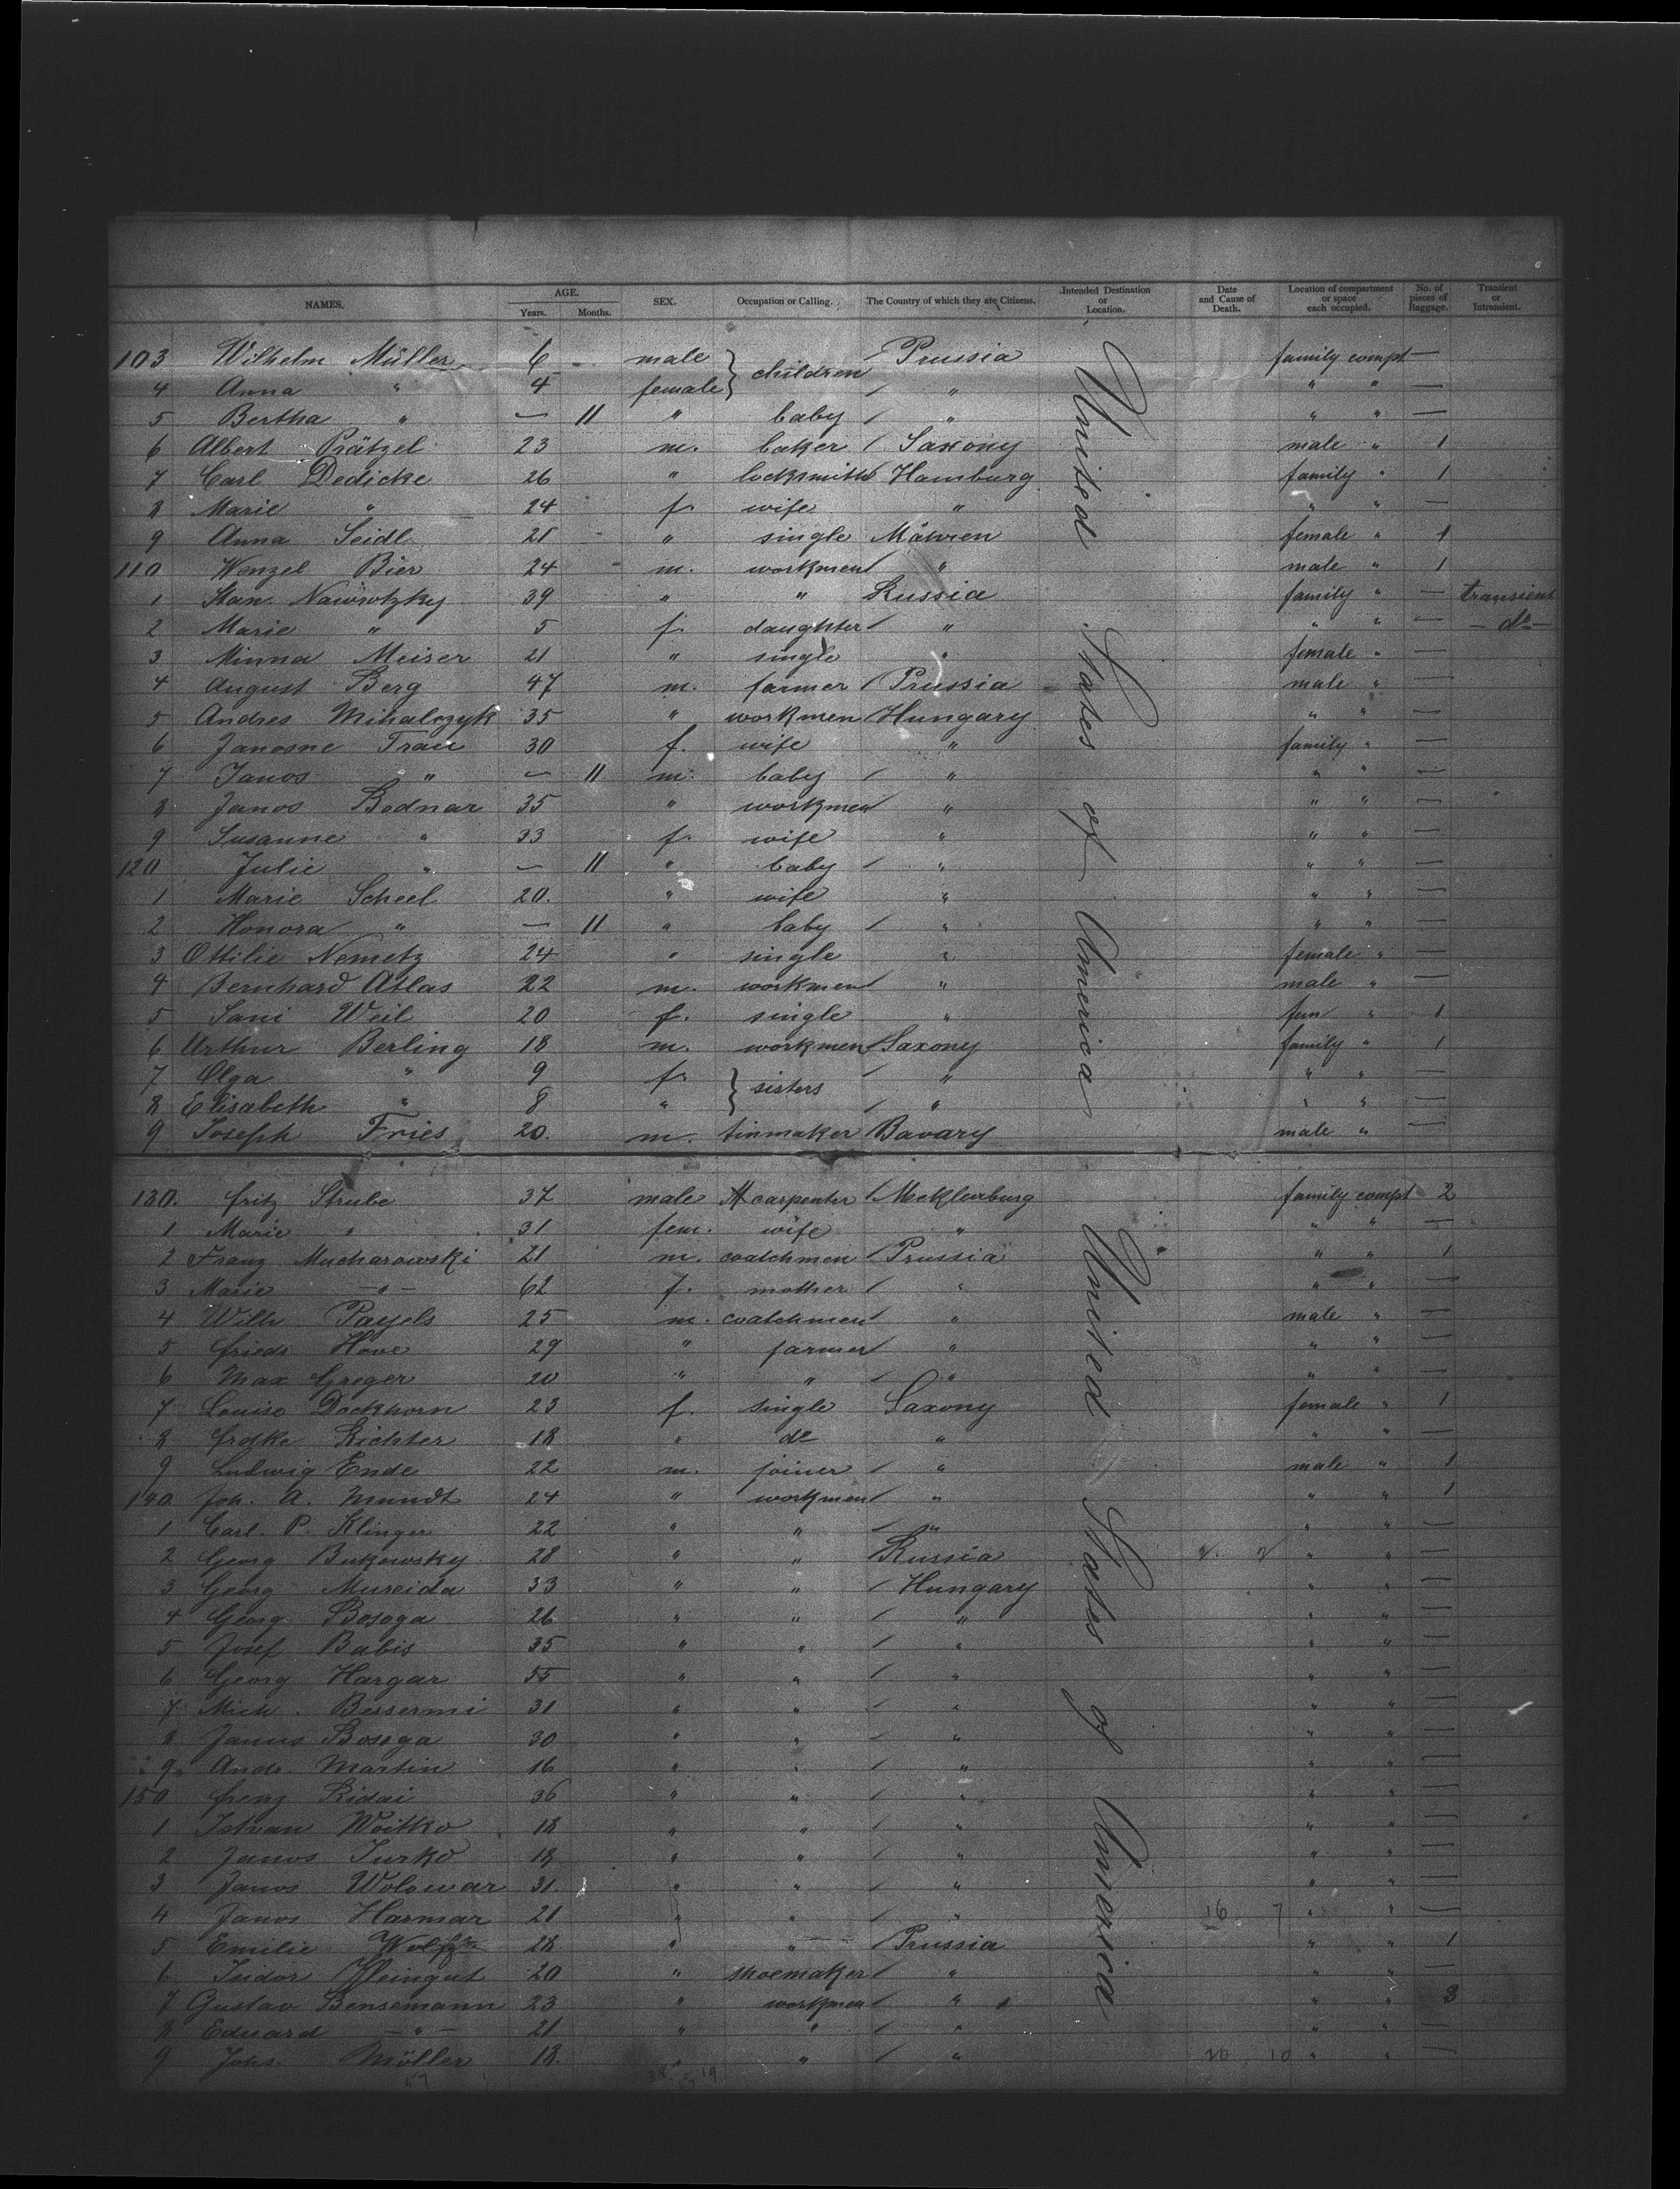 NAMES. AGE. Years. Months. SEX. Occupation or Calling. The Country of which they are Citizens. Intended Destination or Location. Date and Cause of Death. Location of compartment or space each occupied. No. of pieces of Baggage. Transient or Intransient.
United States of America
103 Wilhelm Müller 6 male children Prussia family compt —
4 Anna " 4 female / " " " —
5 Bertha " — 11 " baby / " " " —
6 Albert Prätzel 23 m. baker / Saxony male " 1
7 Carl Dedicke 26 " locksmith Hamburg family " 1
8 Marie " 24 f. wife " " " —
9 Anna Seidl 21 " single Mähren female " 1
110 Wenzel Bier 24 m. workmen " male " 1
1 Stan. Nawrotzky 39 " " Russia family " — transient
2 Marie " 5 f. daughter / " " " — do —
3 Minna Meiser 21 " single " female " —
4 August Berg 47 m. farmer / Prussia male " —
5 Andres Mihalczyk 35 " workmen Hungary " " —
6 Janosne Trau 30 f. wife " family " —
7 Janos " — 11 m. baby / " " " —
8 Janos Bodnar 35 " workmen " " " —
9 Susanne " 33 f. wife " " " —
120 Julie " — 11 " baby / " " " —
1 Marie Scheel 20. " wife " " " —
2 Honora " — 11 " baby / " " " —
3 Ottilie Nemetz 24 " single " female " —
4 Bernhard Atlas 22 m. workmen " male " —
5 Sani Weil 20 f. single " fem " 1
6 Arthur Berling 18 m. workmen Saxony family " 1
7 Olga " 9 f. sisters / " " " —
8 Elisabeth " 8 " / " " " —
9 Joseph Fries 20. m. tinmaker Bavary male " —
United States of America
130. Fritz Strube 37 male carpenter / Mecklenburg family compt 2
1 Marie " 31 fem. wife " " " —
2 Franz Mucharowski 21 m. coatchmen Prussia " " 1
3 Marie — " — 62 f. mother / " " " —
4 Wilh Payels 25 m. coatchmen " male " —
5 Friedr Hove 29 " farmer / " " " —
6 Max Greger 20 " " / " " " —
7 Louise Dockhorn 23 f. single Saxony female " 1
8 Frdke Richter 18 " do " " " —
9 Ludwig Ende 22 m. joiner / " male " 1
140 Joh. A. Mundt 24 " workmen " " " 1
1 Carl. P. Klinger 22 " " / " " " —
2 Georg Bukowsky 28 " " Russia " " —
3 Georg Mureida 33 " " / Hungary " " —
4 Georg Bosoga 26 " " / " " " —
5 Josef Babis 35 " " / " " " —
6 Georg Hargar 55 " " / " " " —
7 Mich. Bessermi 31 " " / " " " —
8 Janus Bosoga 30 " " / " " " —
9 Andr. Martin 16 " " / " " " —
150 Ridai 36 " " / " " " —
1 Istvan Woitko 18 " " / " " " —
2 Janos Turko 18 " " / " " " —
3 Janos Wolowar 31. " " / " " " —
4 Janos Harmar 21 " " / " 16 7 " " —
5 Emilie 28 " " Prussia " " 1
6 Isidor Kleingut 20 " shoemaker / " " " —
7 Gustav Bensemann 23 " workmen / " " " 3
8 Eduard — " — 21 " " / " " " —
9 Johs. Möller 18. " " / " 20 10 " " —